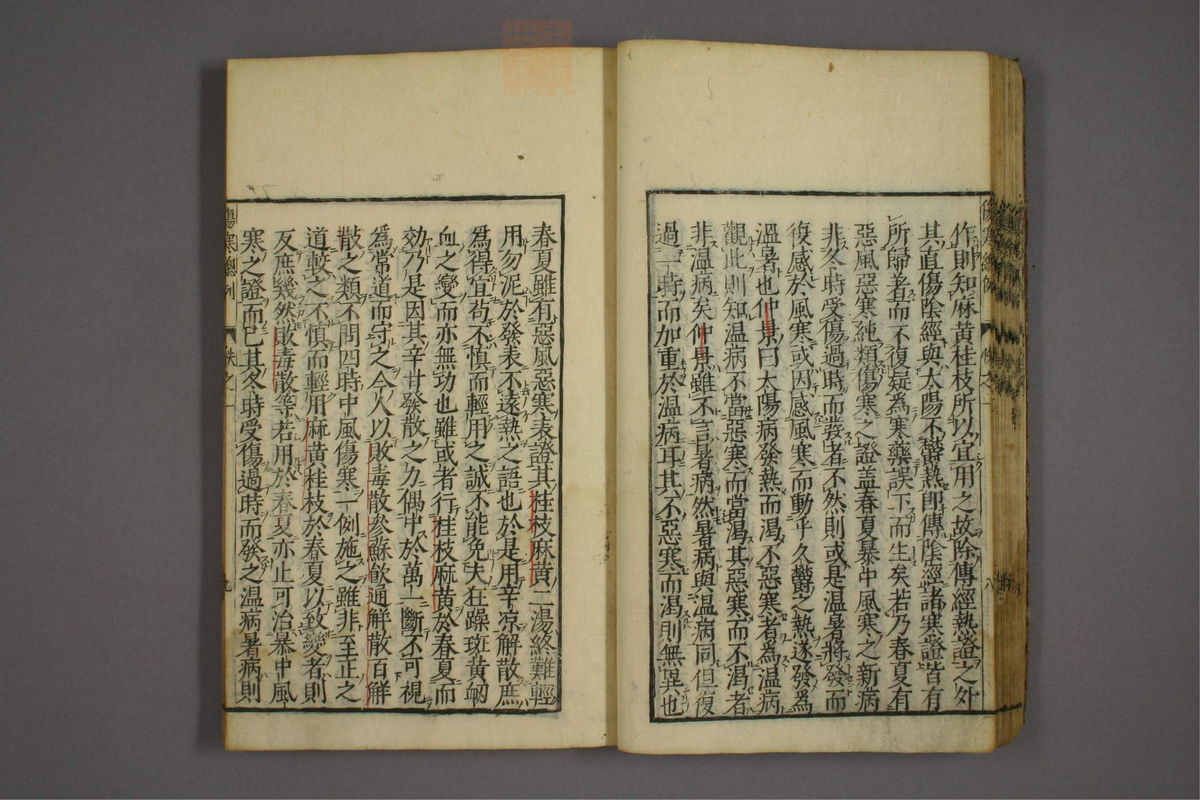 作則知麻黃桂枝所以宜用之故除傳經熱證之外
其直傷陰經與太陽不鬱熱即傳陰經諸寒證皆有
所歸著而不復疑爲寒藥誤下而生矣若乃春夏有
惡風惡寒純類傷寒之證盖春夏暴中風寒之新病
非冬時受傷過時而發者不然則或是温暑將發而
復感於風寒或因感風寒而動乎久鬱之熱遂發爲
温暑也仲景曰太陽病發熱而渴不惡寒者爲温病
觀此則知温病不當惡寒而當渴其惡寒而不渴者
非温病矣仲景雖不言暑病然暑病與温病同但復
過一時而加重於温病耳其不惡寒而渴則無異也
春夏雖有惡風惡寒表證其桂枝麻黃二湯終難輕
用勿泥於發表不遠熱之語也於是用辛凉解散庶
爲得宜苟不慎而輕用之誠不能免夫狂躁斑黃衂
血之變而亦無功也雖或者行桂枝麻黃於春夏而
効乃是因其辛甘發散之力偶中於萬一斷不可視
爲常道而守之今人以敗毒散參蘇飮通解散百解
散之類不問四時中風傷寒一例施之雖非至正之
道較之不慎而輕用麻黃桂枝於春夏以致變者則
反庶幾然敗毒散等若用於春夏亦止可治暴中風
寒之證而已其冬時受傷過時而發之温病暑病則
傷寒總例
卷之一
九